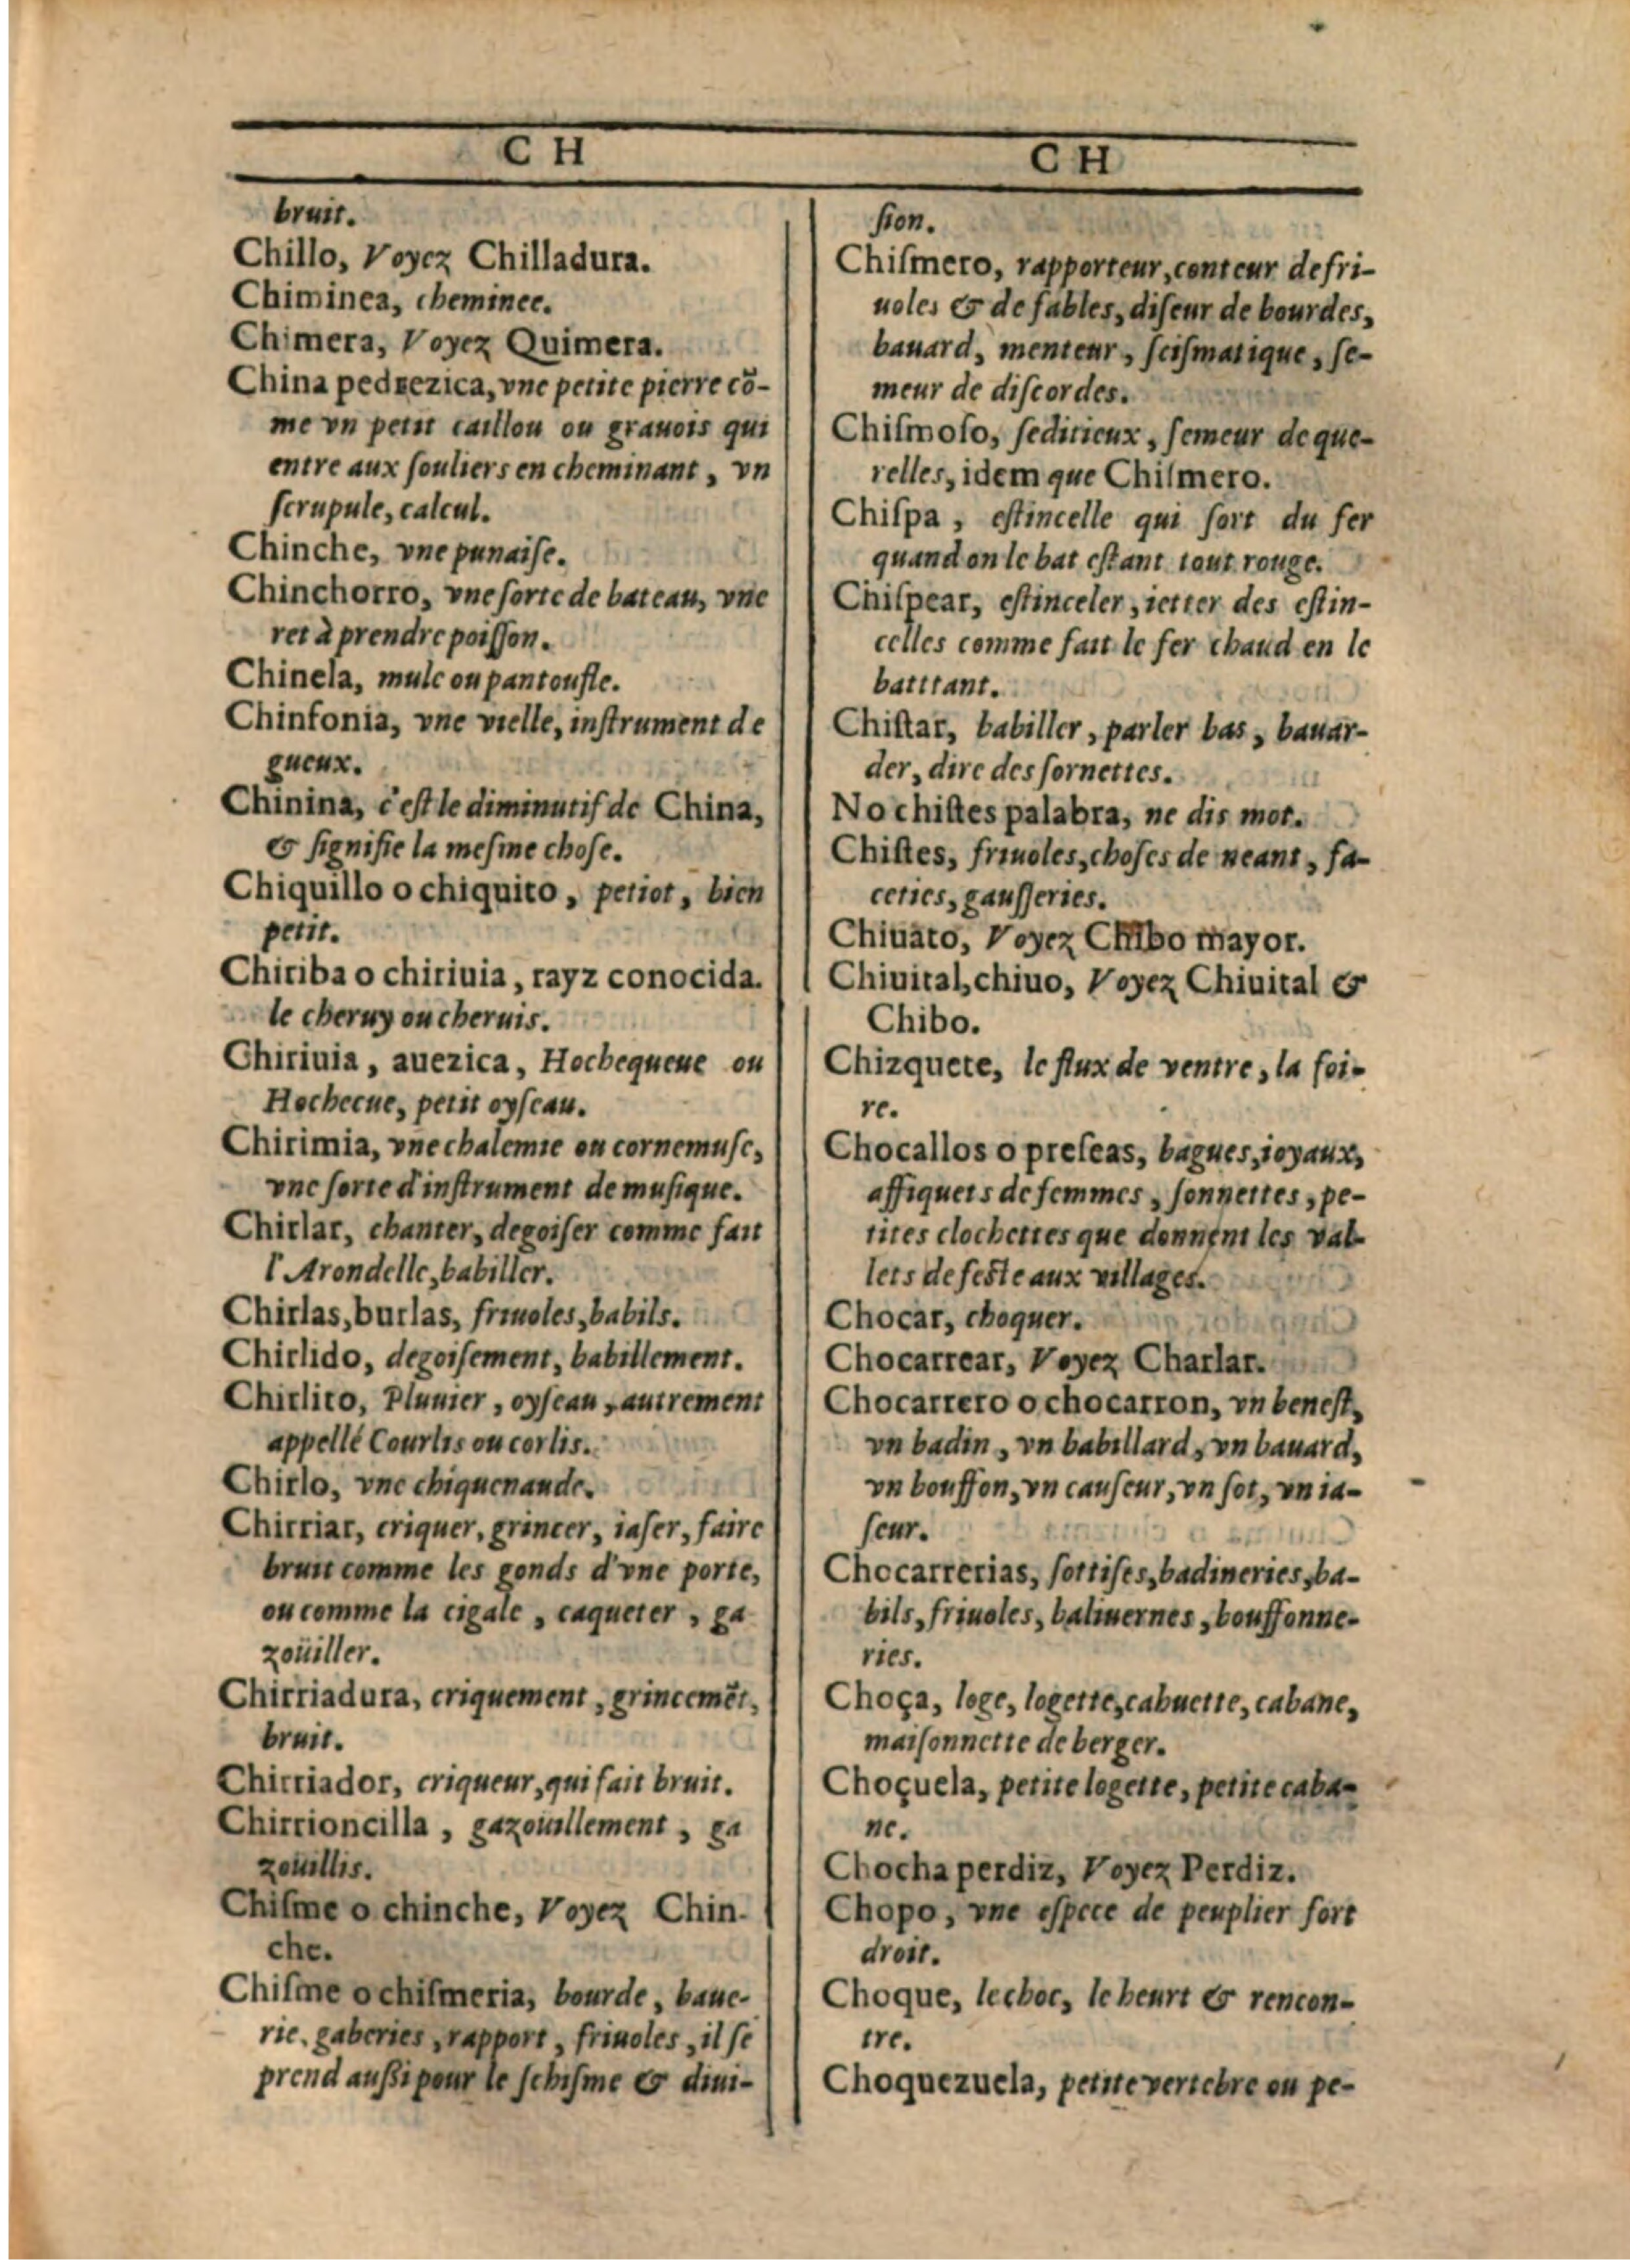 C H
bruit.
Chillo, Voyez Chilladura.
Chiminea, cheminee.
Chimera, Voyez Quimera.
China pedrezica, vne petite pierre cõ-
me vn petit caillou ou grauois qui
entre aux ſouliers en cheminant, vn
ſcrupule, calcul.
Chinche, vne punaiſe.
Chinchorro, vne ſorte de bateau, vne
ret à prendre poiſſon.
Chinela, mule ou pantoufle.
Chinfonia, vne vielle, inſtrument de
gueux.
Chinina, c'eſt le diminutif de China,
& ſignifie la meſme choſe.
Chiquillo o chiquito, petiot, bien
petit.
Chiriba o chiriuia, rayz conocida.
le cheruy ou cheruis.
Chiriuia, auezica, Hochequeue ou
Hochecue, petit oyſeau.
Chirimia, vne chalemie ou cornemuſe,
vne ſorte d'inſtrument de muſique.
Chirlar, chanter, degoiſer comme fait
l'Arondelle, babiller.
Chirlas, burlas, friuoles, babils.
Chirlido, degoiſement, babillement.
Chirlito, Pluuier, oyſeau, autrement
appellé Courlis ou corlis.
Chirlo, vne chiquenaude.
Chirriar, criquer, grincer, iaſer, faire
bruit comme les gonds d'vne porte,
ou comme la cigale, caqueter, ga
zoüiller.
Chirriadura, criquement, grincemẽt,
bruit.
Chirriador, criqueur, qui fait bruit.
Chirrioncilla, gazouillement, ga
zoüillis.
Chiſme o chinche, Voyez Chin-
che.
Chiſme o chiſmeria, bourde, baue-
rie, gaberies, rapport, friuoles, il ſe
prend auſſi pour le ſchiſme & diui-
C H
ſion.
Chiſmero, rapporteur, conteur de fri-
uoles & de fables, diſeur de bourdes,
bauard, menteur, ſciſmatique, ſe-
meur de diſcordes.
Chiſmoſo, ſeditieux, ſemeur de que-
relles, idem que Chiſmero.
Chiſpa, eſtincelle qui ſort du fer
quand on le bat eſtant tout rouge.
Chiſpear, eſtinceler, ietter des eſtin-
celles comme fait le fer chaud en le
batttant.
Chiſtar, babiller, parler bas, bauar-
der, dire des ſornettes.
No chiſtes palabra, ne dis mot.
Chiſtes, friuoles, choſes de neant, fa-
ceties, gauſſeries.
Chiuato, Voyez Chibo mayor.
Chiuital, chiuo, Voyez Chiuital &
Chibo.
Chizquete, le flux de ventre, la foi-
re.
Chocallos o preſeas, bagues, ioyaux,
affiquets de femmes, ſonnettes, pe-
tites clochettes que donnent les val-
lets de feſte aux villages.
Chocar, choquer.
Chocarrear, Voyez Charlar.
Chocarrero o chocarron, vn beneſt,
vn badin, vn babillard, vn bauard,
vn bouffon, vn cauſeur, vn ſot, vn ia-
ſeur.
Chocarrerias, ſottiſes, badineries, ba-
bils, friuoles, baliuernes, bouffonne-
ries.
Choça, loge, logette, cahuette, cabane,
maiſonnette de berger.
Choçuela, petite logette, petite caba-
ne.
Chocha perdiz, Voyez Perdiz.
Chopo, vne eſpece de peuplier fort
droit.
Choque, le choc, le heurt & rencon-
tre.
Choquezuela, petite vertebre ou pe-